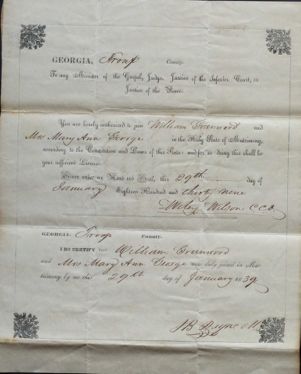 GEORGIA, Troup County.
To any Minister of the Gospel, Judge, Justice of the Inferior Court, or
Justice of the Peace.
You are hereby authorized to join William Greenwood and
Mrs Mary Ann George in the Holy State of Matrimony,
according to the Constitution and Laws of this State: and for so doing this shall be
your sufficient License.
Given under my Hand and Seal, this 29th day of
January Eighteen Hundred and thirty nine
Wilson C.C.O.
GEORGIA, Troup County.
I DO CERTIFY that William Greenwood
and Mrs Mary Ann George were duly joined in Matrimony
by me this 29th day of January 1839